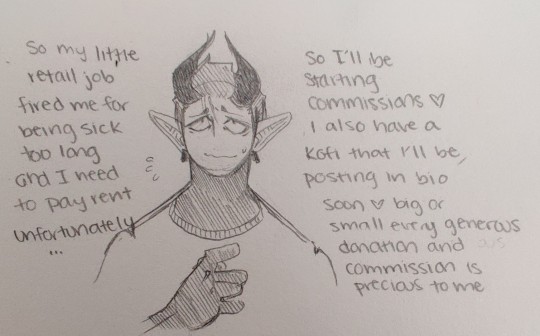 So my little
retail job
fired me for
being sick
too long
and I need
to pay rent
unfortunately
...
So I'll be
starting
commissions ♡
I also have a
Kofi that I'll be,
posting in bio
soon ♡ big or
small every generous
donation and
commission is
precious to me